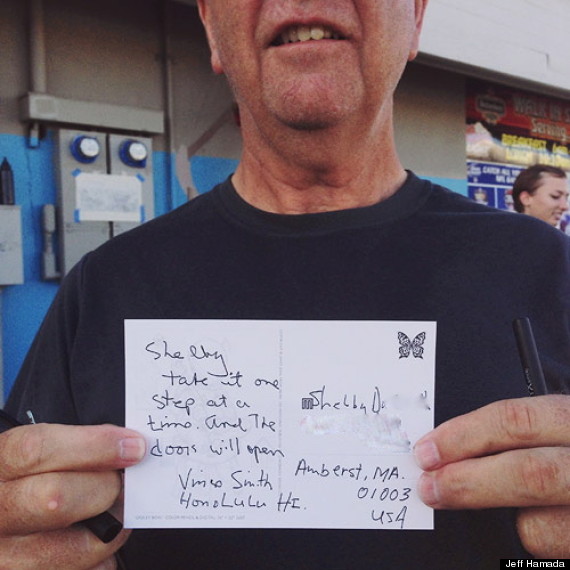 Shelby
take it one
step at a
time. And The
doors will open
Vince Smith
Honolulu HI.
Shelby
Amherst, MA.
01003
USA
Jeff Hamada